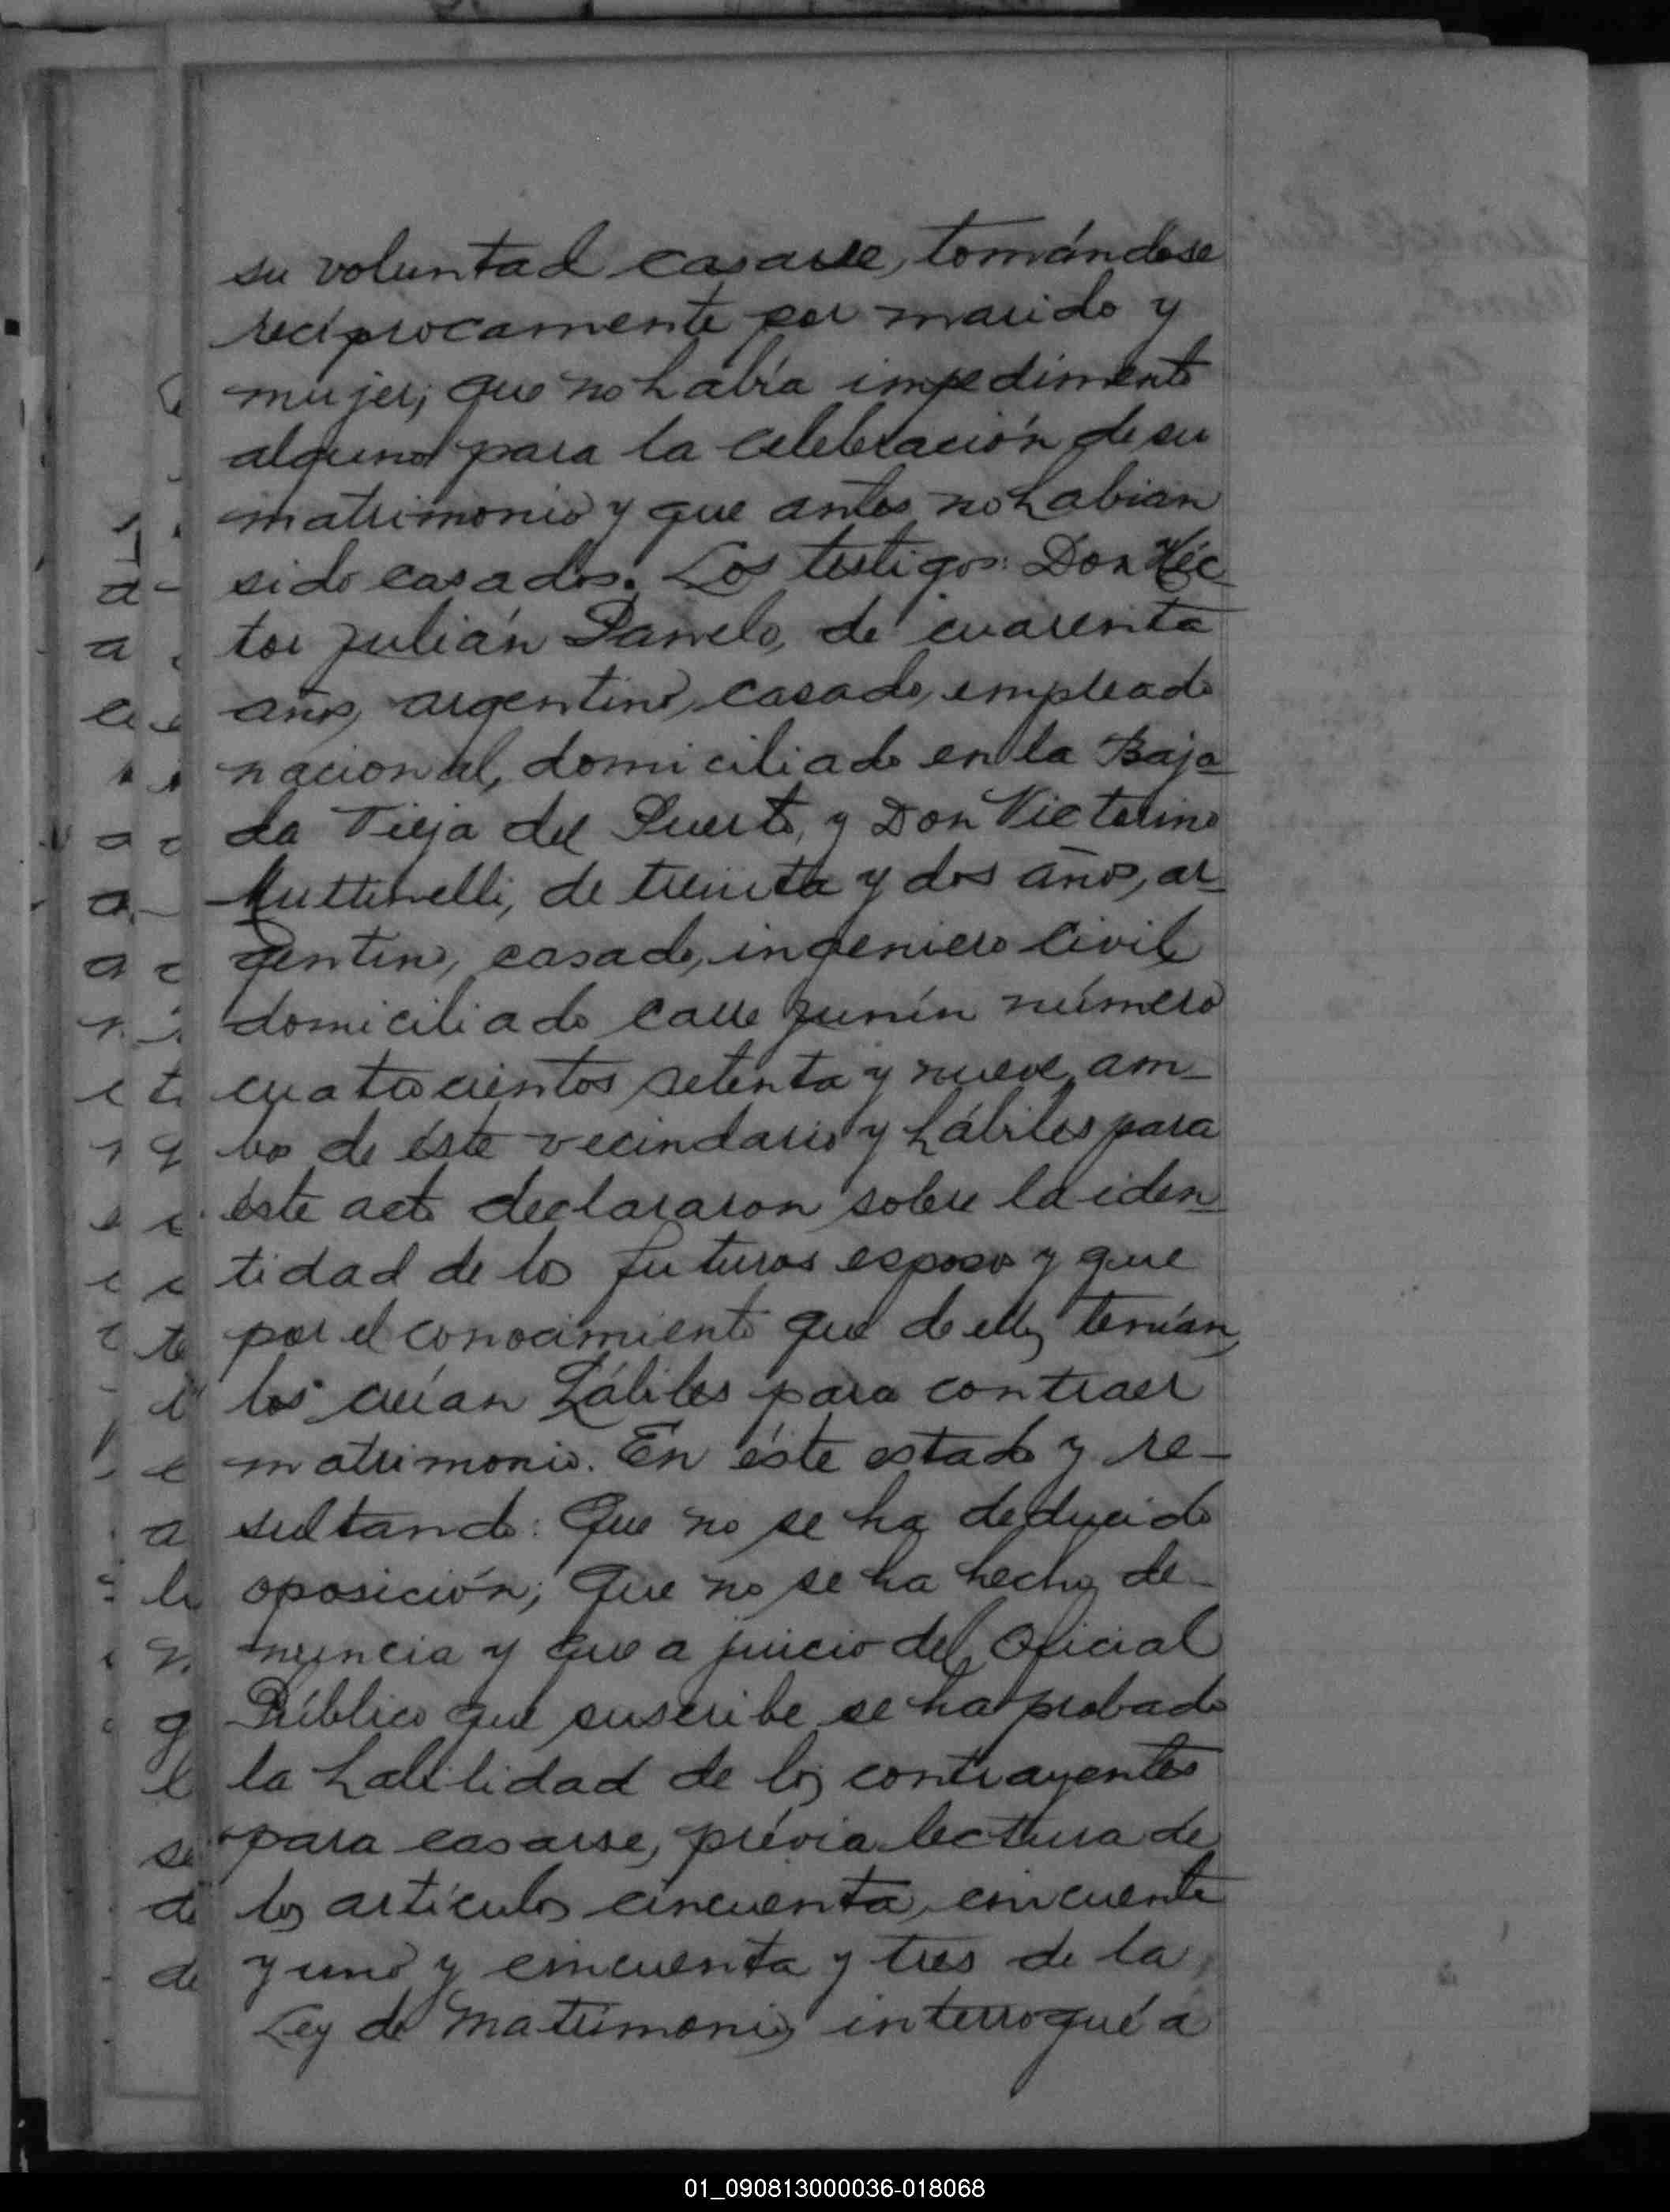 su voluntad casarse, tomándose
recíprocamente por marido y
mujer; que no había impedimento
alguno para la celebración de su
matrimonio y que antes no habian
sido casados. Los testigos: Don Héc-
tor Julián de cuarenta
años, argentino, casado, empleado
nacional, domiciliado en la Baja-
da Vieja del Puerto, y Don Victorino
de treinta y dos años, ar-
gentino, casado, ingeniero civil
domiciliado calle Junín número
cuatrocientos setenta y nueve, am-
bos de éste vecindario y hábiles para
éste acto declararon sobre la iden-
tidad de los futuros esposos y que
por el conocimiento que de ellos tenían,
los creían hábiles para contraer
matrimonio. En éste estado y re-
sultando: Que no se ha deducido
oposición; Que no se ha hecho de-
nuncia y que a juicio del Oficial
Público que suscribe se ha probado
la habilidad de los contrayentes
para casarse, prévia lectura de
los artículos cincuenta, cincuenta
y uno y cincuenta y tres de la
Ley de Matrimonio, interrogué a
01_090813000036-018068